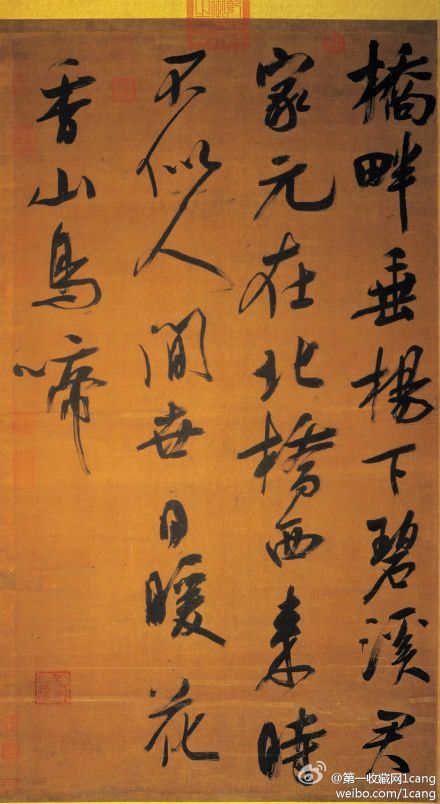 橋畔垂楊下碧溪君
家元在北橋西來時
不似人間世日暖花
香山鳥啼
@第一收藏网1cang
weibo.com/1cang